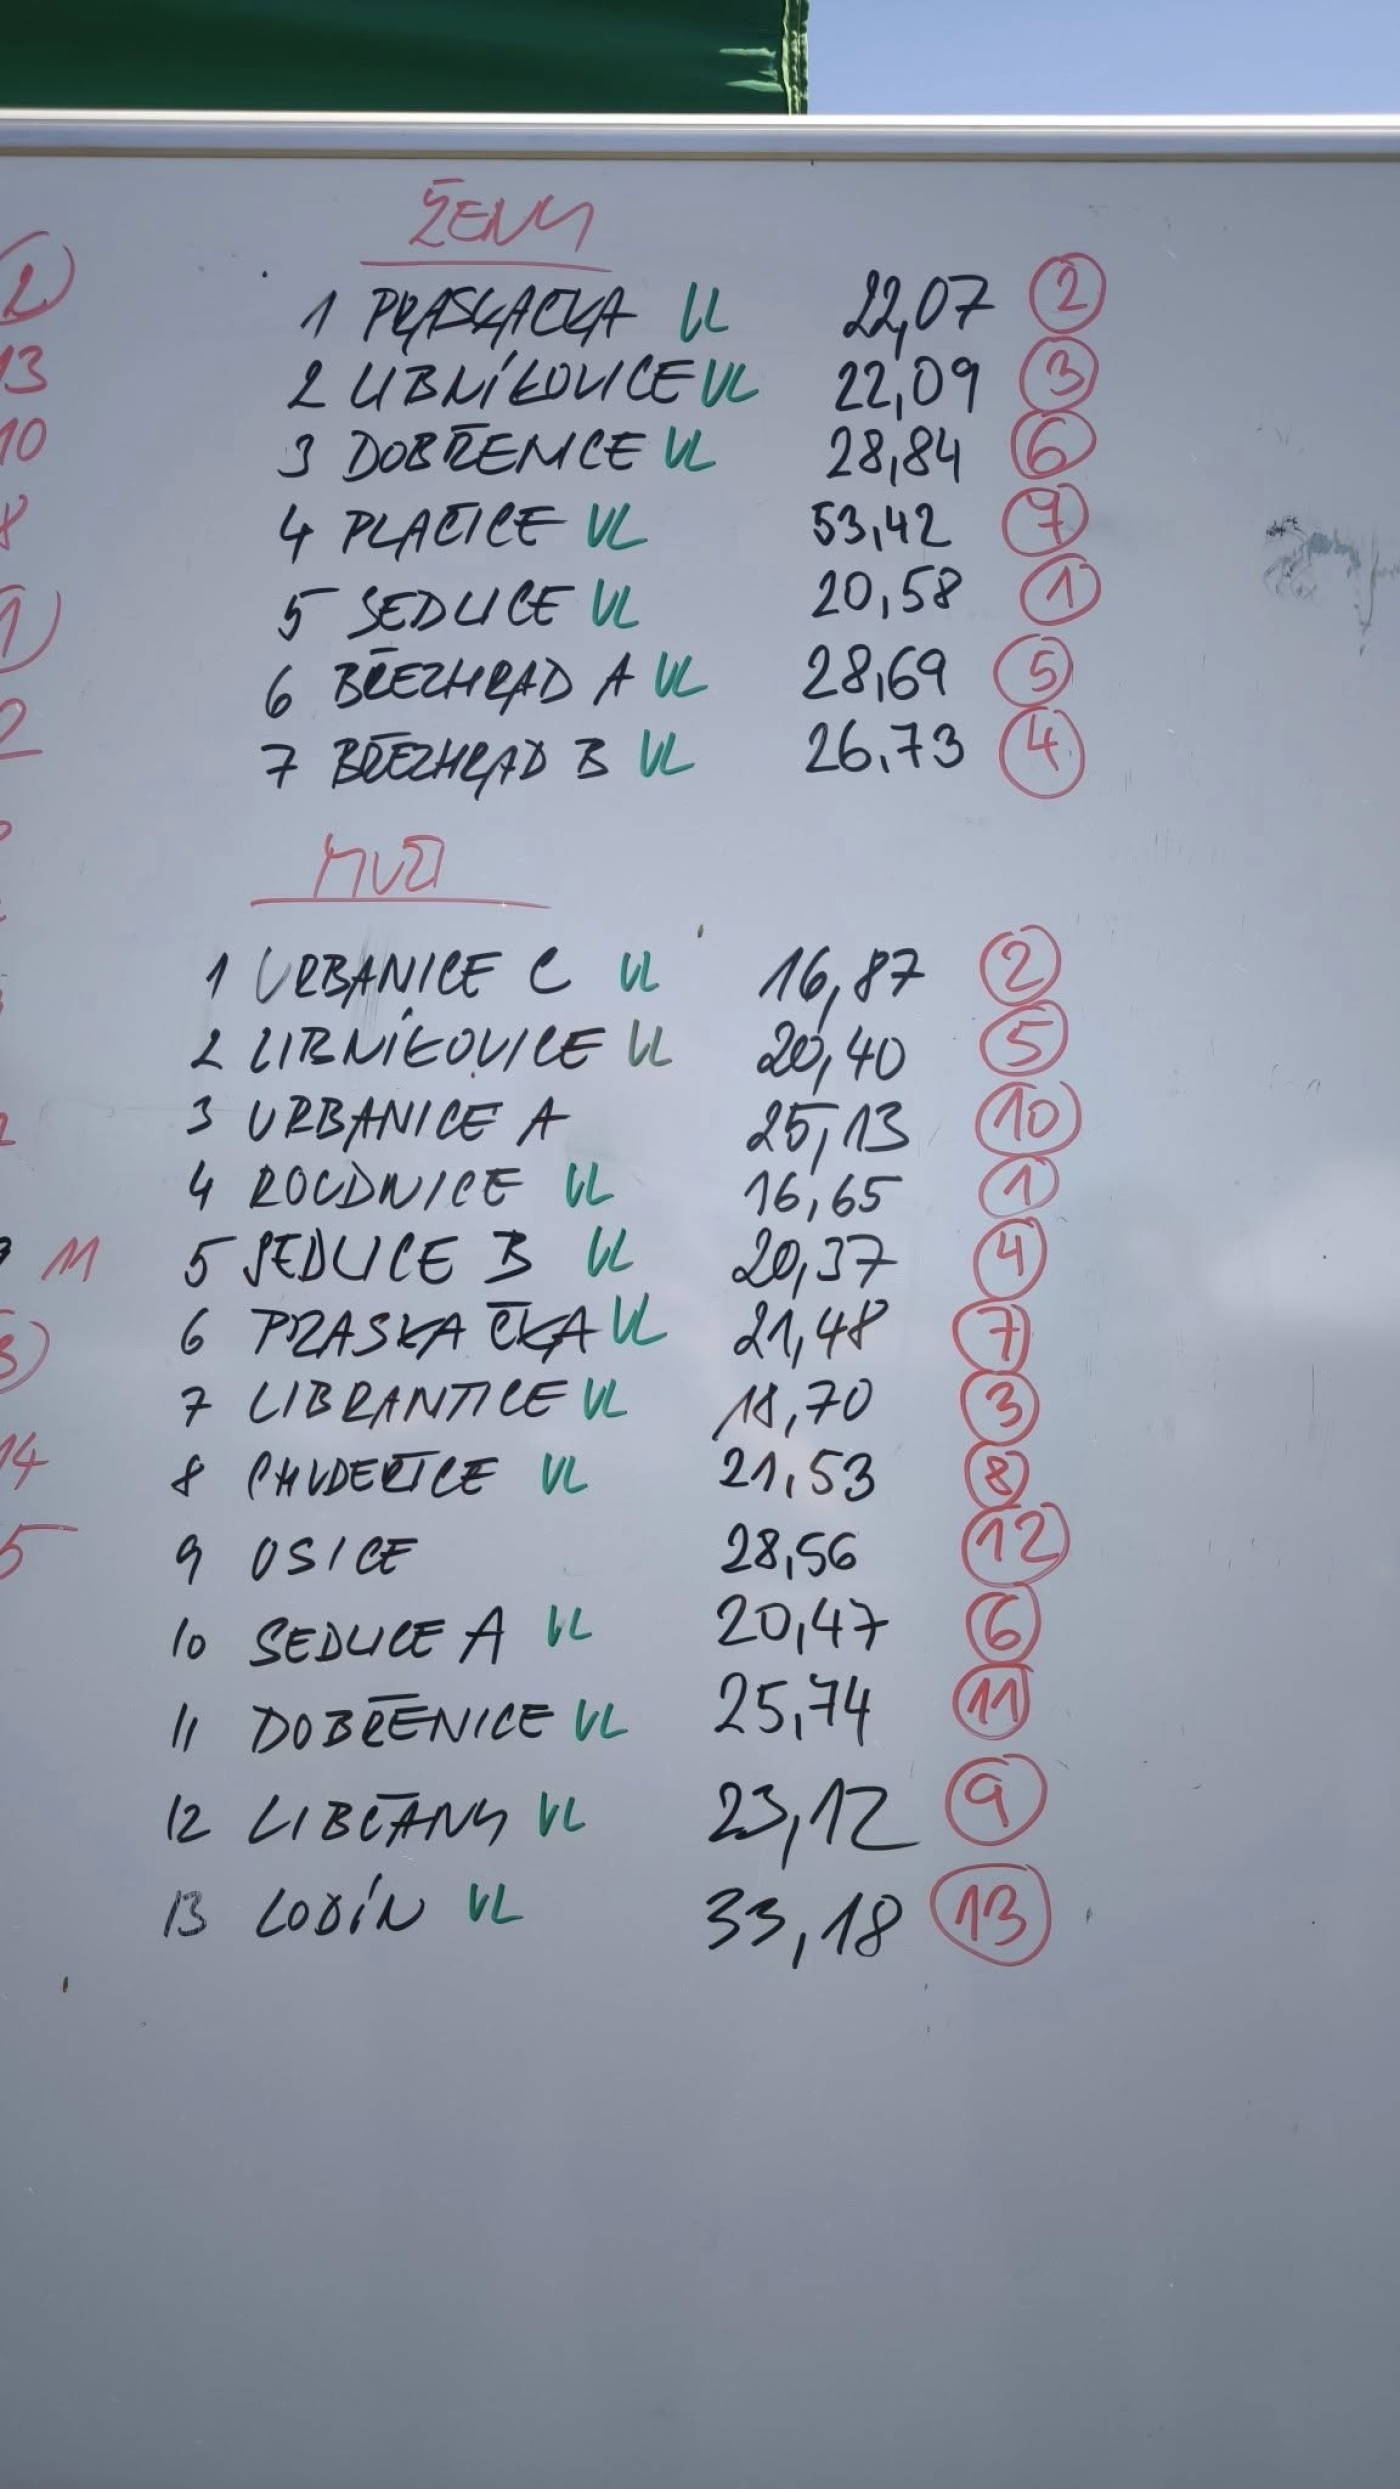 ŽENY
1 PRASKAČKA VL 22,07 2
2 LIBNÍKOVICE VL 22,09 3
3 DOBŘENICE VL 28,84 6
4 PLAČICE VL 53,42 7
5 SEDLICE VL 20,58 1
6 BŘEZHRAD A VL 28,69 5
7 BŘEZHRAD B VL 26,73 4
MUŽI
1 URBANICE C VL 16,87 2
2 LIBNÍKOVICE VL 20,40 5
3 URBANICE A 25,13 10
4 ROUDNICE VL 16,65 1
5 SEDLICE B VL 20,37 4
6 PRASKAČKA VL 21,48 7
7 LIBRANTICE VL 18,70 3
8 CHUDEŘICE VL 21,53 8
9 OSICE 28,56 12
10 SEDLICE A VL 20,47 6
11 DOBŘENICE VL 25,74 11
12 LIBČANY VL 23,12 9
13 LODÍN VL 33,18 13
2
13
10
8
1
2
11
3
14
5